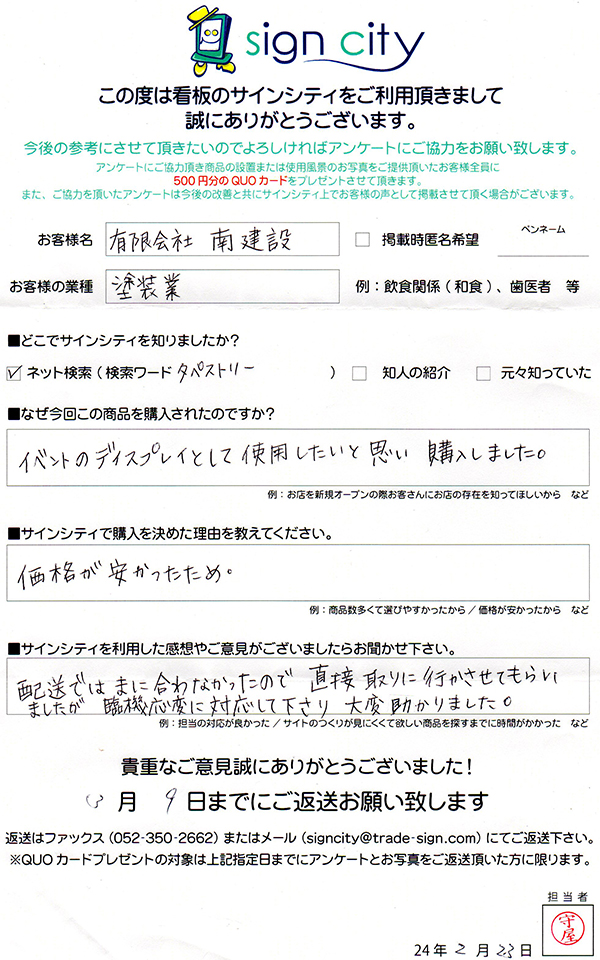 sign city
この度は看板のサインシティをご利用頂きまして
誠にありがとうございます。
今後の参考にさせて頂きたいのでよろしければアンケートにご協力をお願い致します。
アンケートにご協力頂き商品の設置または使用風景のお写真をご提供頂いたお客様全員に
500円分のQUOカードをプレゼントさせて頂きます。
また、ご協力を頂いたアンケートは今後の改善と共にサインシティ上でお客様の声として掲載させて頂く場合がございます。
お客様名 有限会社 南建設 掲載時匿名希望 ペンネーム
お客様の業種 塗装業 例：飲食関係（和食）、歯医者 等
■どこでサインシティを知りましたか？
✓ ネット検索（検索ワード タペストリー ） 知人の紹介 元々知っていた
■なぜ今回この商品を購入されたのですか？
イベントのディスプレイとして使用したいと思い 購入しました。
例：お店を新規オープンの際お客さんにお店の存在を知ってほしいから など
■サインシティで購入を決めた理由を教えてください。
価格が安かったため。
例：商品数多くて選びやすかったから／価格が安かったから など
■サインシティを利用した感想やご意見がございましたらお聞かせ下さい。
配送ではまに合わなかったので 直接取りに行かさせてもらい
ましたが 臨機応変に対応して下さり 大変助かりました。
例：担当の対応が良かった／サイトのつくりが見にくくて欲しい商品を探すまでに時間がかかった など
貴重なご意見誠にありがとうございました！
3月 9日までにご返送お願い致します
返送はファックス（052-350-2662）またはメール（signcity@trade-sign.com）にてご返送下さい。
※QUOカードプレゼントの対象は上記指定日までにアンケートとお写真をご返送頂いた方に限ります。
担当者
守屋
24年 2月 23日